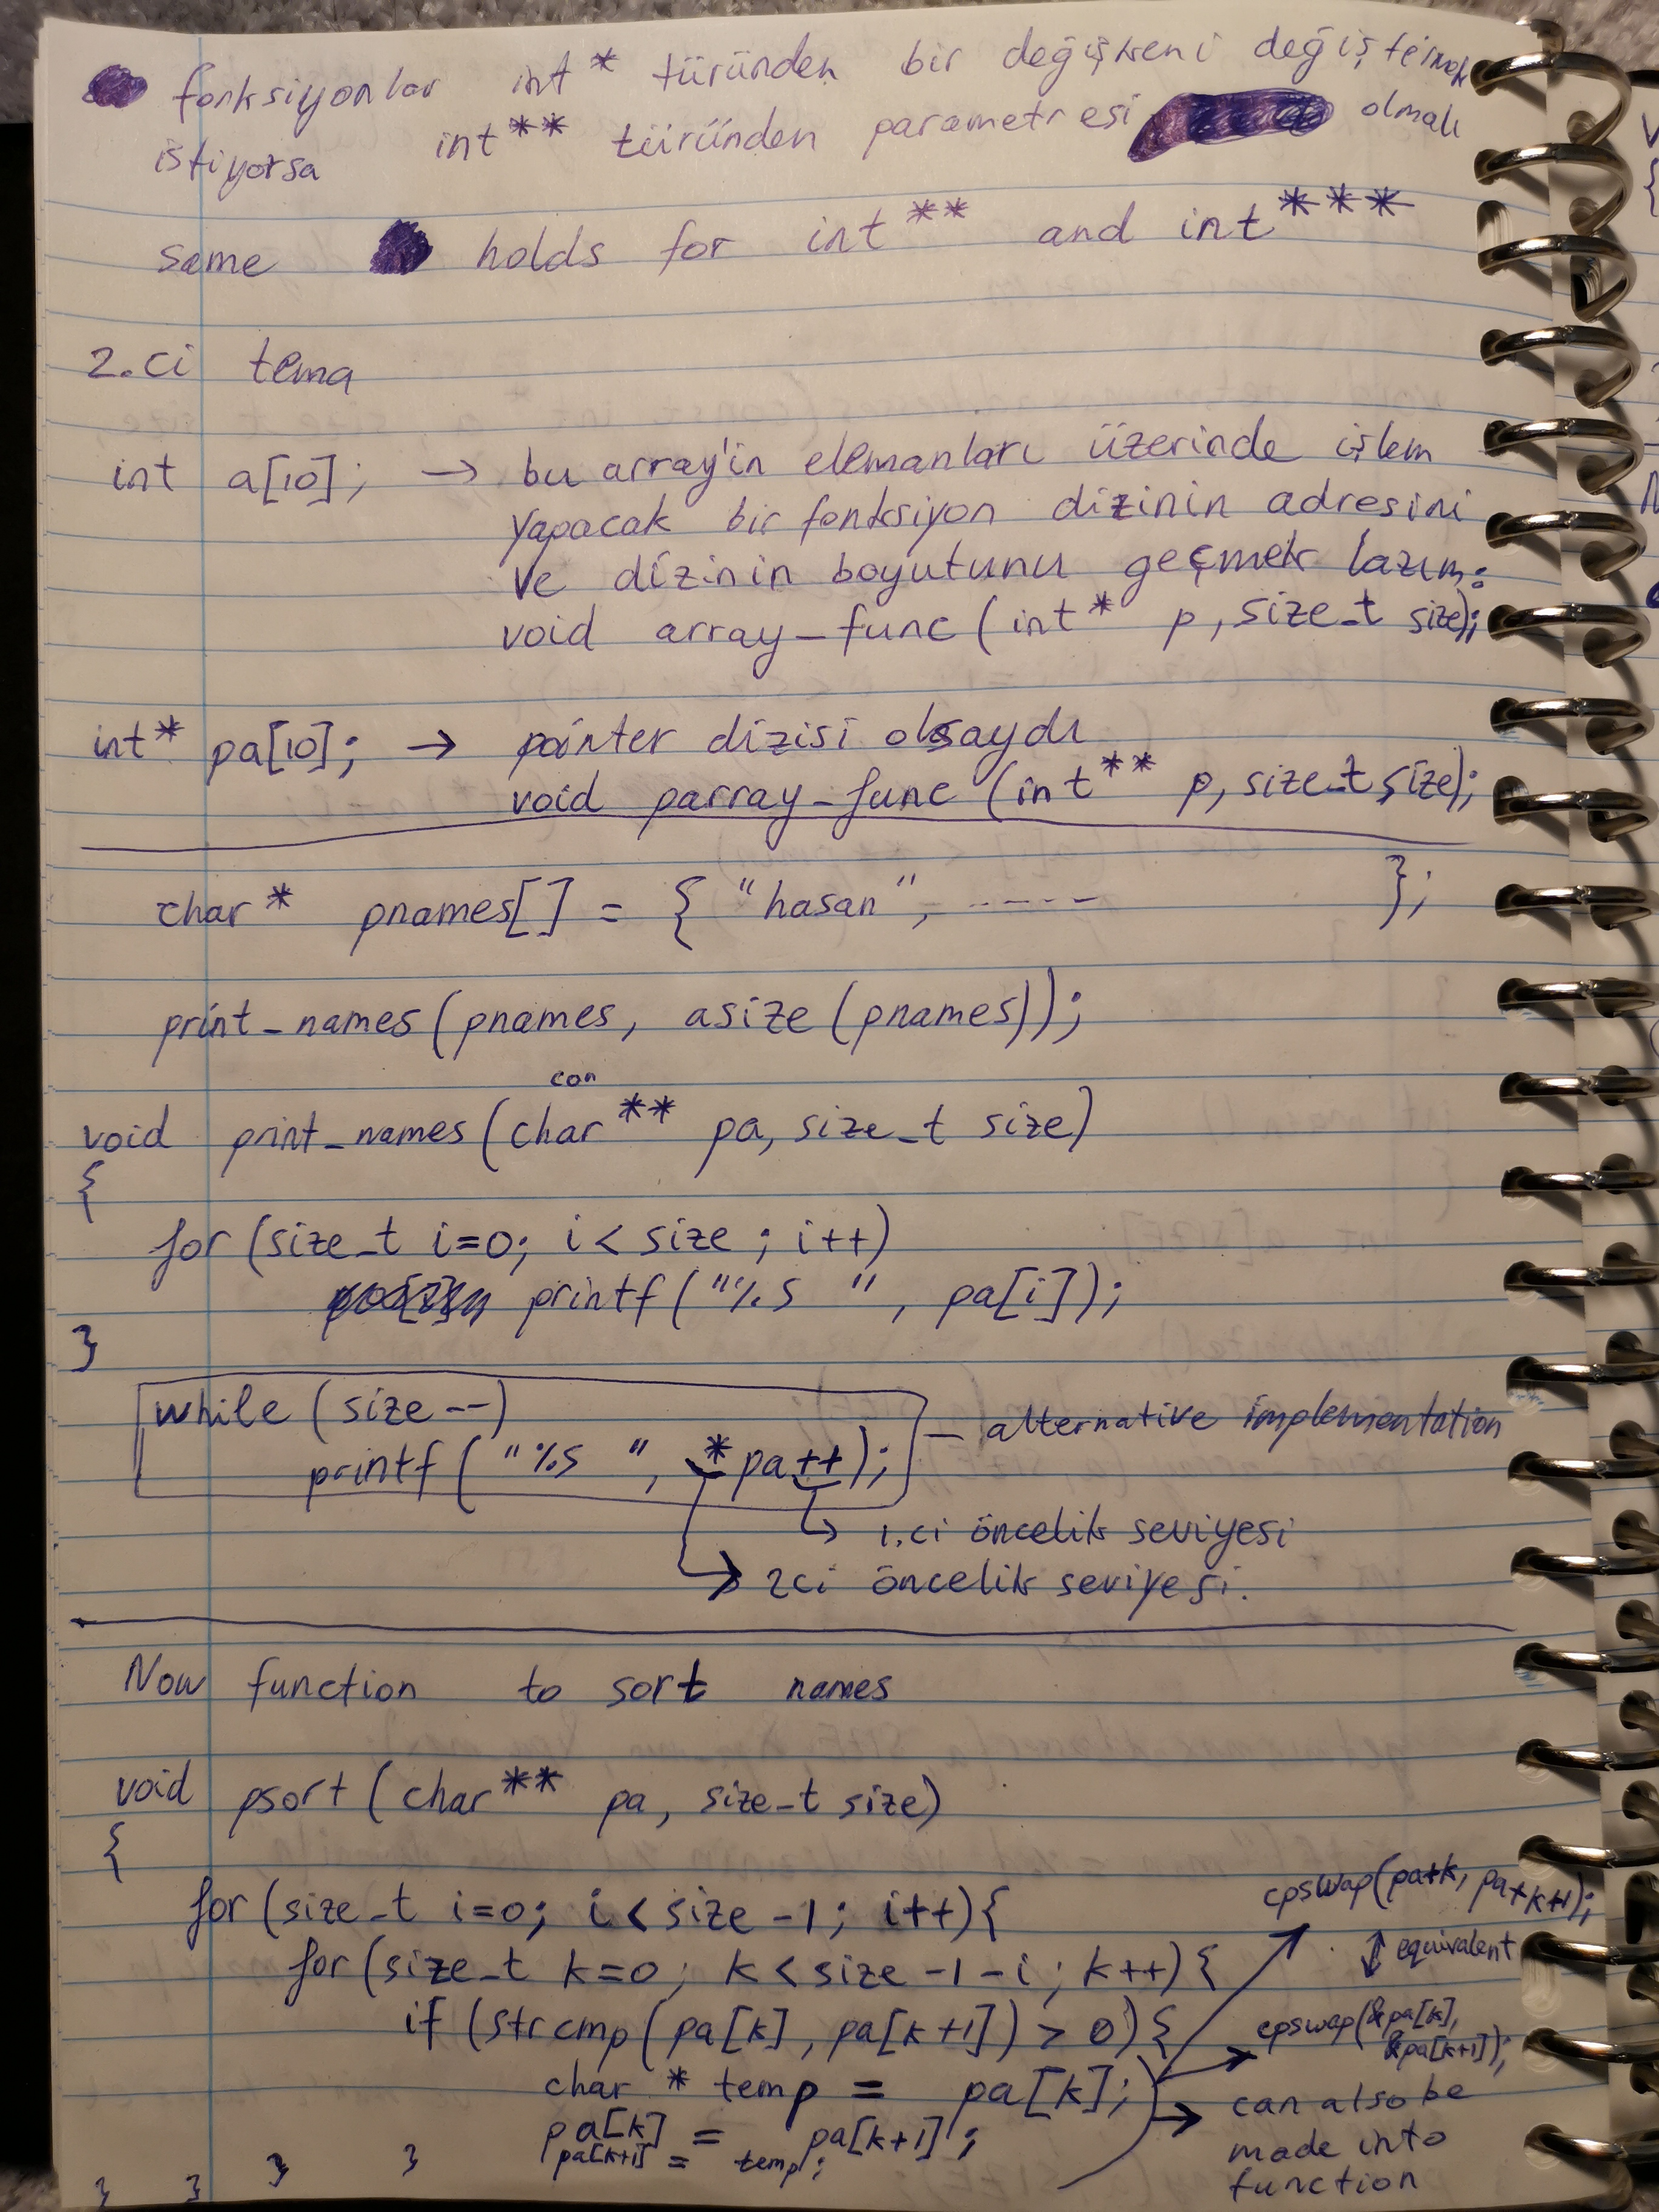 fonksiyonlar int* türünden bir değişkeni değiştirmek
istiyorsa int** türünden parametresi olmalı
same holds for int** and int***
2.ci tema
int a[10]; → bu array'in elemanları üzerinde işlem
yapacak bir fonksiyon dizinin adresini
ve dizinin boyutunu geçmek lazım:
void array_func(int* p, size_t size);
int* pa[10]; → pointer dizisi olsaydı
void parray_func(int** p, size_t size);
char* pnames[] = { "hasan", ----- };
print_names(pnames, asize(pnames));
con
void print_names(char** pa, size_t size)
{
for(size_t i=0; i<size; i++)
printf("%s ", pa[i]);
}
while(size--)
printf("%s ", *pa++); — alternative implementation
→ 1.ci öncelik seviyesi
→ 2ci öncelik seviyesi.
Now function to sort names
void psort(char** pa, size_t size)
{
for(size_t i=0; i<size-1; i++){
cpswap(pa+k, pa+k+1);
↕ equivalent
for(size_t k=0; k<size-1-i; k++){
if(strcmp(pa[k], pa[k+1])>0){
cpswap(&pa[k],
&pa[k+1]);
char * temp = pa[k];
pa[k] = pa[k+1];
pa[k+1] = temp;
→ can also be
made into
function
} } } }